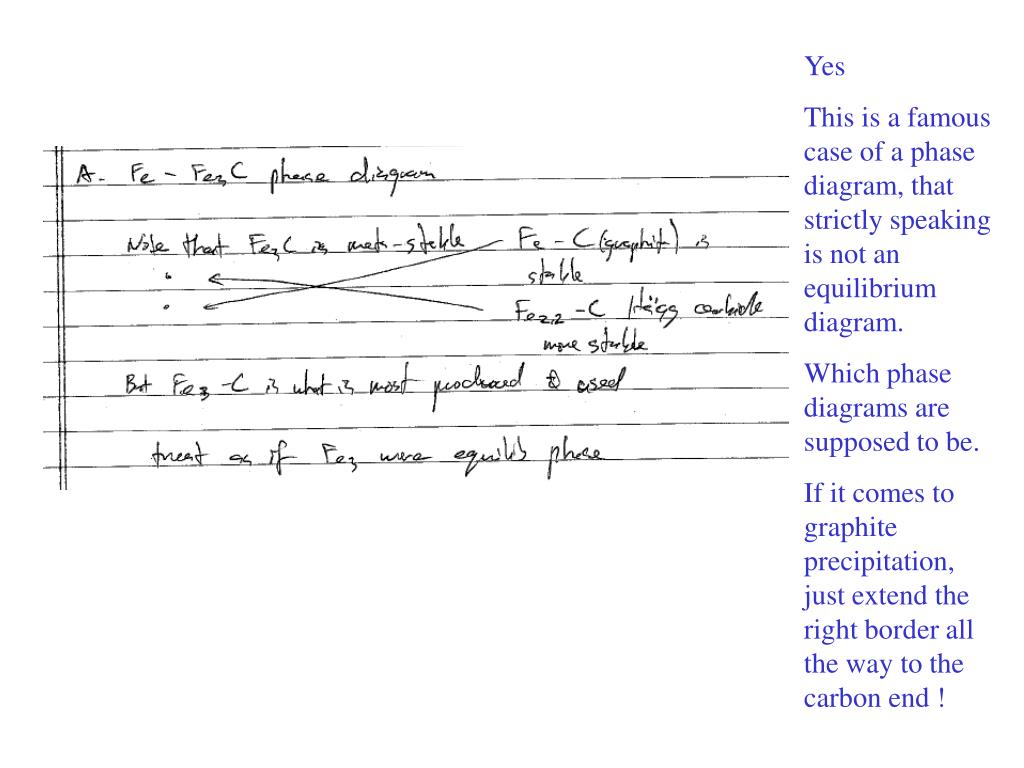 A. Fe - Fe3C phase diagram
Note that Fe3C is meta-stable
Fe - C (graphit) is
stable
Fe2.2 - C Hägg carbide
more stable
But Fe3 - C is what is most produced & used
treat as if Fe3 were equilib phase
Yes
This is a famous
case of a phase
diagram, that
strictly speaking
is not an
equilibrium
diagram.
Which phase
diagrams are
supposed to be.
If it comes to
graphite
precipitation,
just extend the
right border all
the way to the
carbon end !